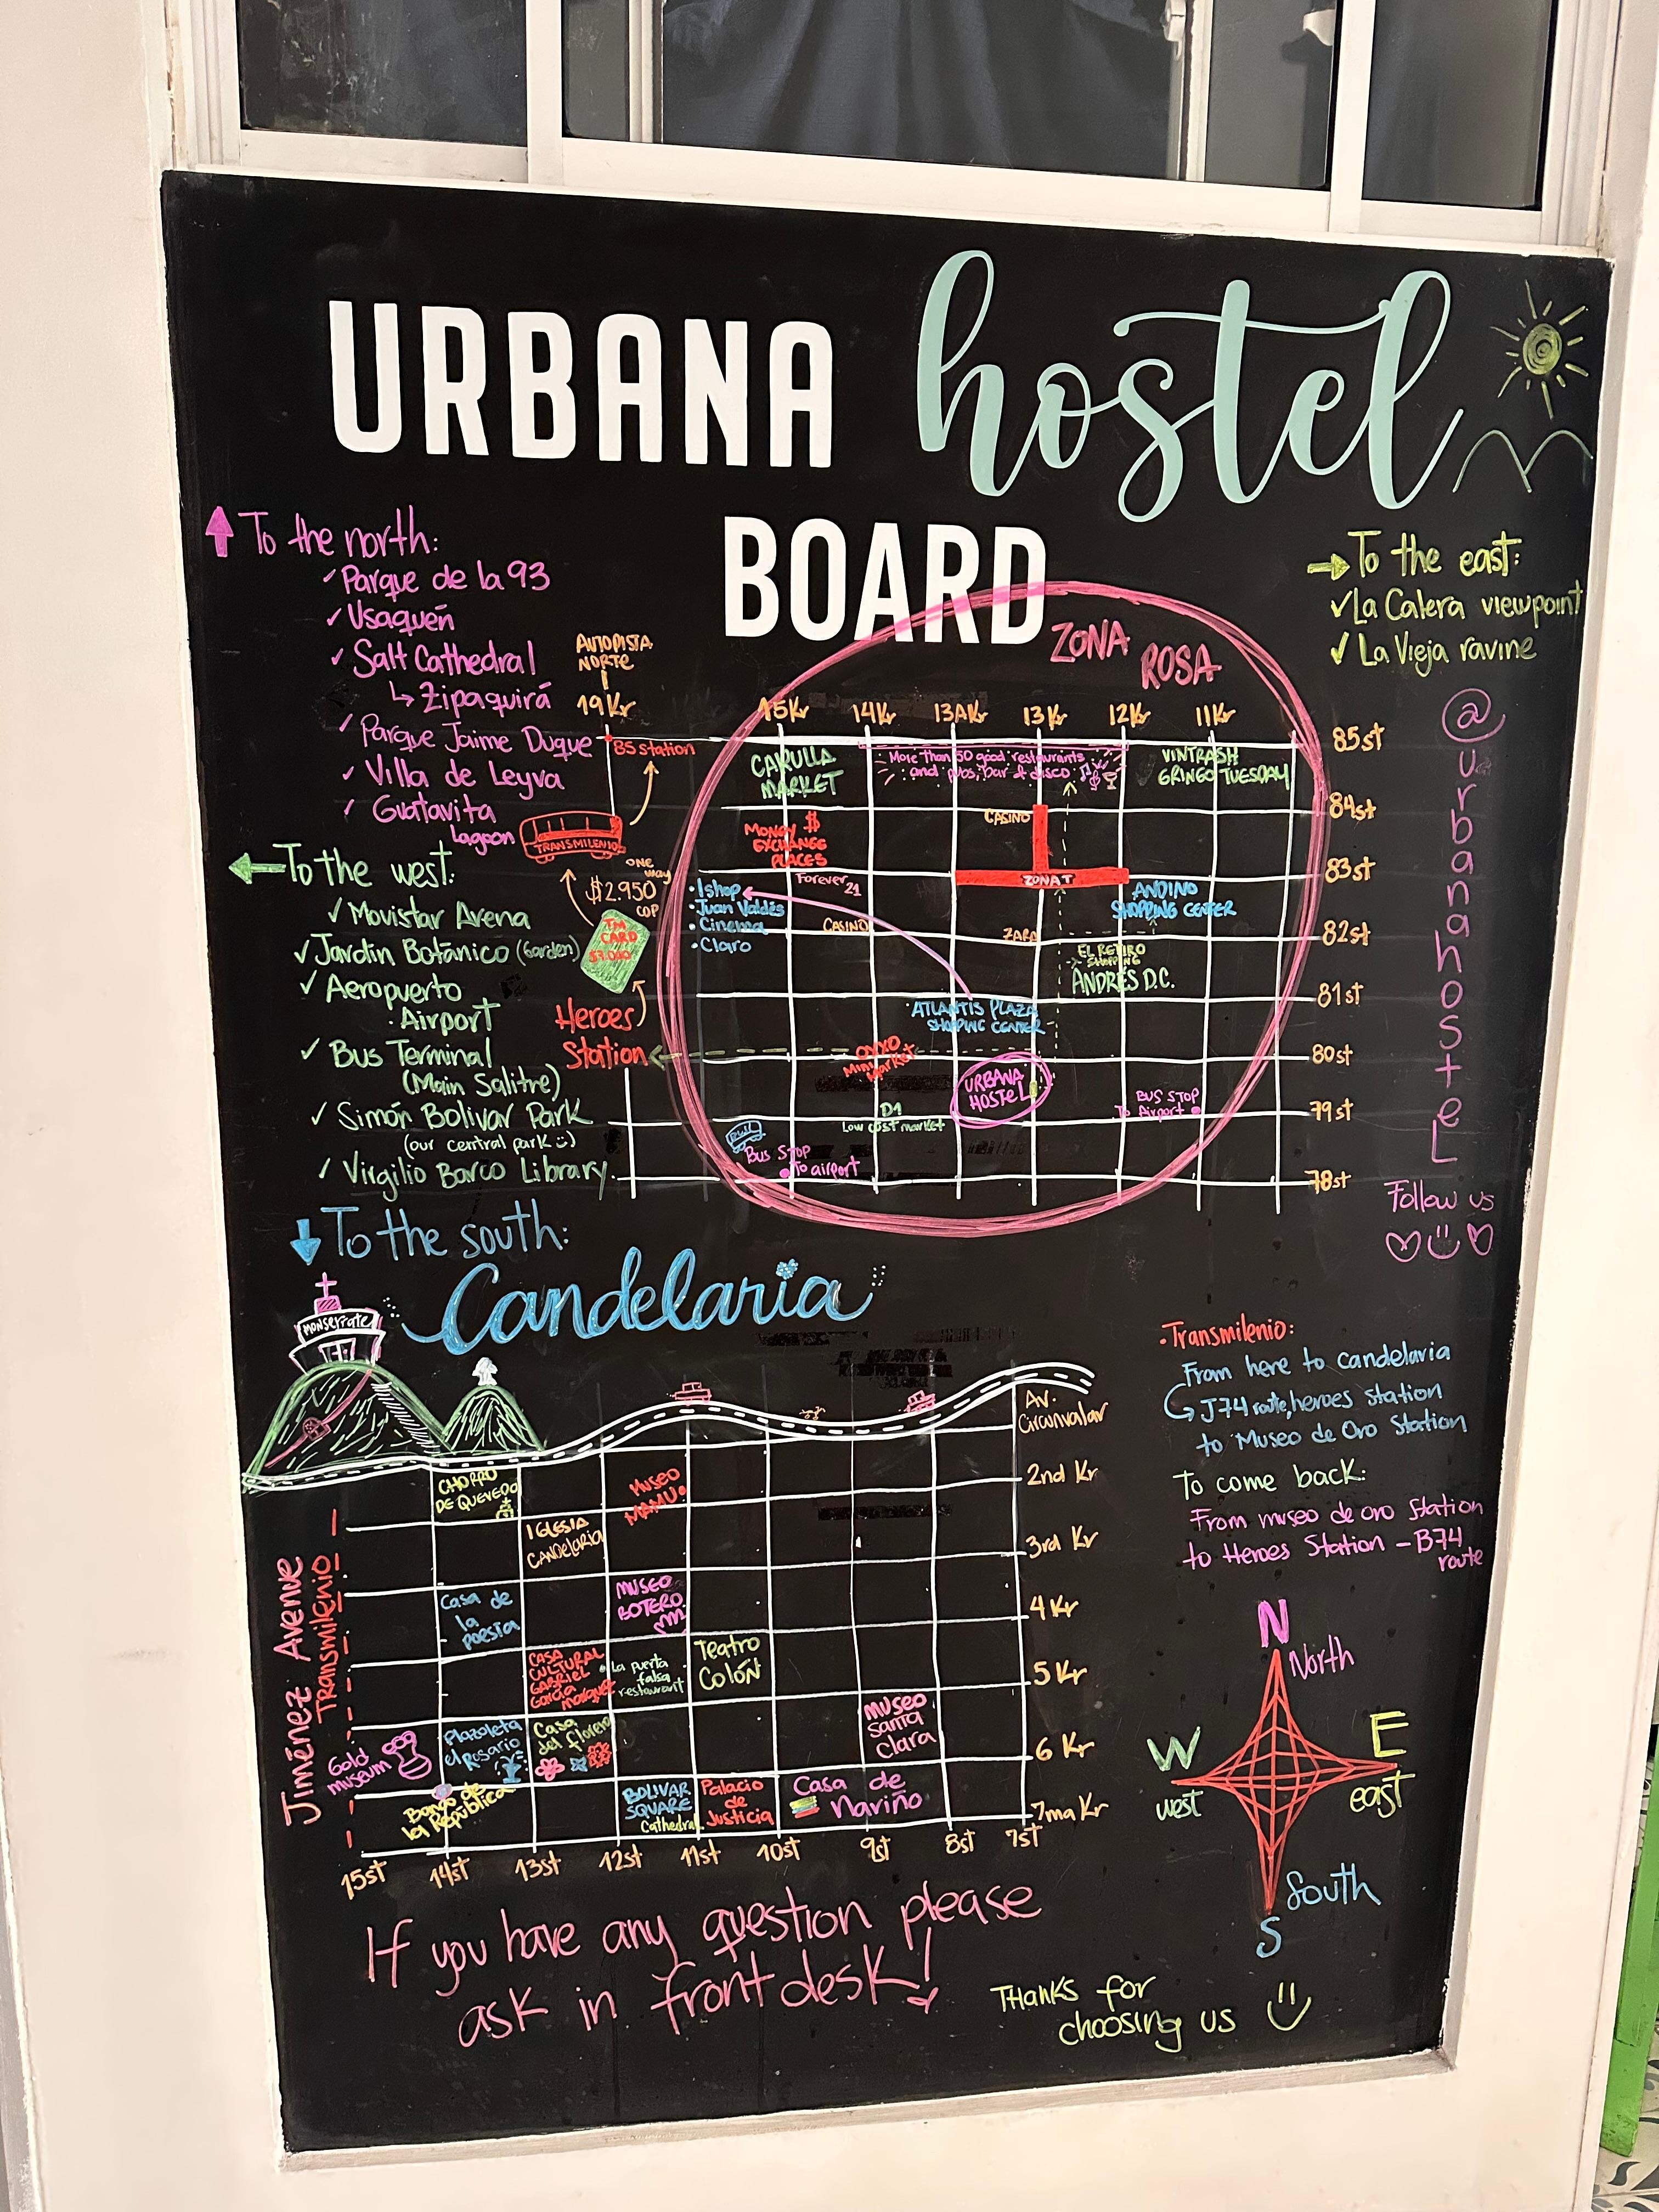 URBANA hostel
BOARD
To the north:
✓ Parque de la 93
✓ Usaquén
✓ Salt Cathedral
↳ Zipaquirá
✓ Parque Jaime Duque
✓ Villa de Leyva
✓ Guatavita
Lagoon
To the west:
✓ Movistar Arena
✓ Jardín Botánico (Garden)
✓ Aeropuerto
Airport
✓ Bus Terminal
(Main Salitre)
✓ Simón Bolívar Park
(our central park :)
✓ Virgilio Barco Library
AUTOPISTA
NORTE
19Kr
85 station
TRANSMILENIO
ONE
way
$2.950
COP
TM
CARD
Heroes
Station
ZONA
ROSA
15Kr 14Kr 13AKr 13Kr 12Kr 11Kr
85st
84st
83st
82st
81st
80st
79st
78st
CARULLA
MARKET
More than 50 good restaurants
and pubs, bar & disco
VINTRASH
GRINGO TUESDAY
MONEY $
EXCHANGE
PLACES
CASINO
ZONA T
Forever 21
• Ishop
• Juan Valdés
• Cinema
• Claro
CASINO
ZARA
ANDINO
SHOPPING CENTER
EL RETIRO
SHOPPING
ANDRÉS D.C.
ATLANTIS PLAZA
SHOPPING CENTER
OXXO
Mini
Market
URBANA
HOSTEL
BUS STOP
To Airport
D1
Low cost market
BUS
BUS STOP
To airport
→ To the east:
✓ La Calera viewpoint
✓ La Vieja ravine
@urbanahostel
Follow us
To the south:
Candelaria
MONSERRATE
Av.
Circunvalar
2nd Kr
3rd Kr
4 Kr
5 Kr
6 Kr
7ma Kr
CHORRO
DE QUEVEDO
MUSEO
MAMU
IGLESIA
CANDELARIA
Casa de
la
poesia
MUSEO
BOTERO
CASA
CULTURAL
GABRIEL
García
Marquez
La puerta
falsa
restaurant
Teatro
Colón
Gold
museum
Plazoleta
el Rosario
Casa
del florero
MUSEO
Santa
Clara
Banco de
la República
BOLIVAR
SQUARE
Cathedral
Palacio
de
Justicia
Casa de
Nariño
Jiménez Avenue
Transmilenio
15st 14st 13st 12st 11st 10st 9st 8st 7st
• Transmilenio:
From here to candelaria
J74 route, heroes station
to Museo de Oro Station
To come back:
From museo de oro station
to Heroes Station - B74
route
N
North
W
west
E
east
South
S
If you have any question please
ask in front desk!
Thanks for
choosing us